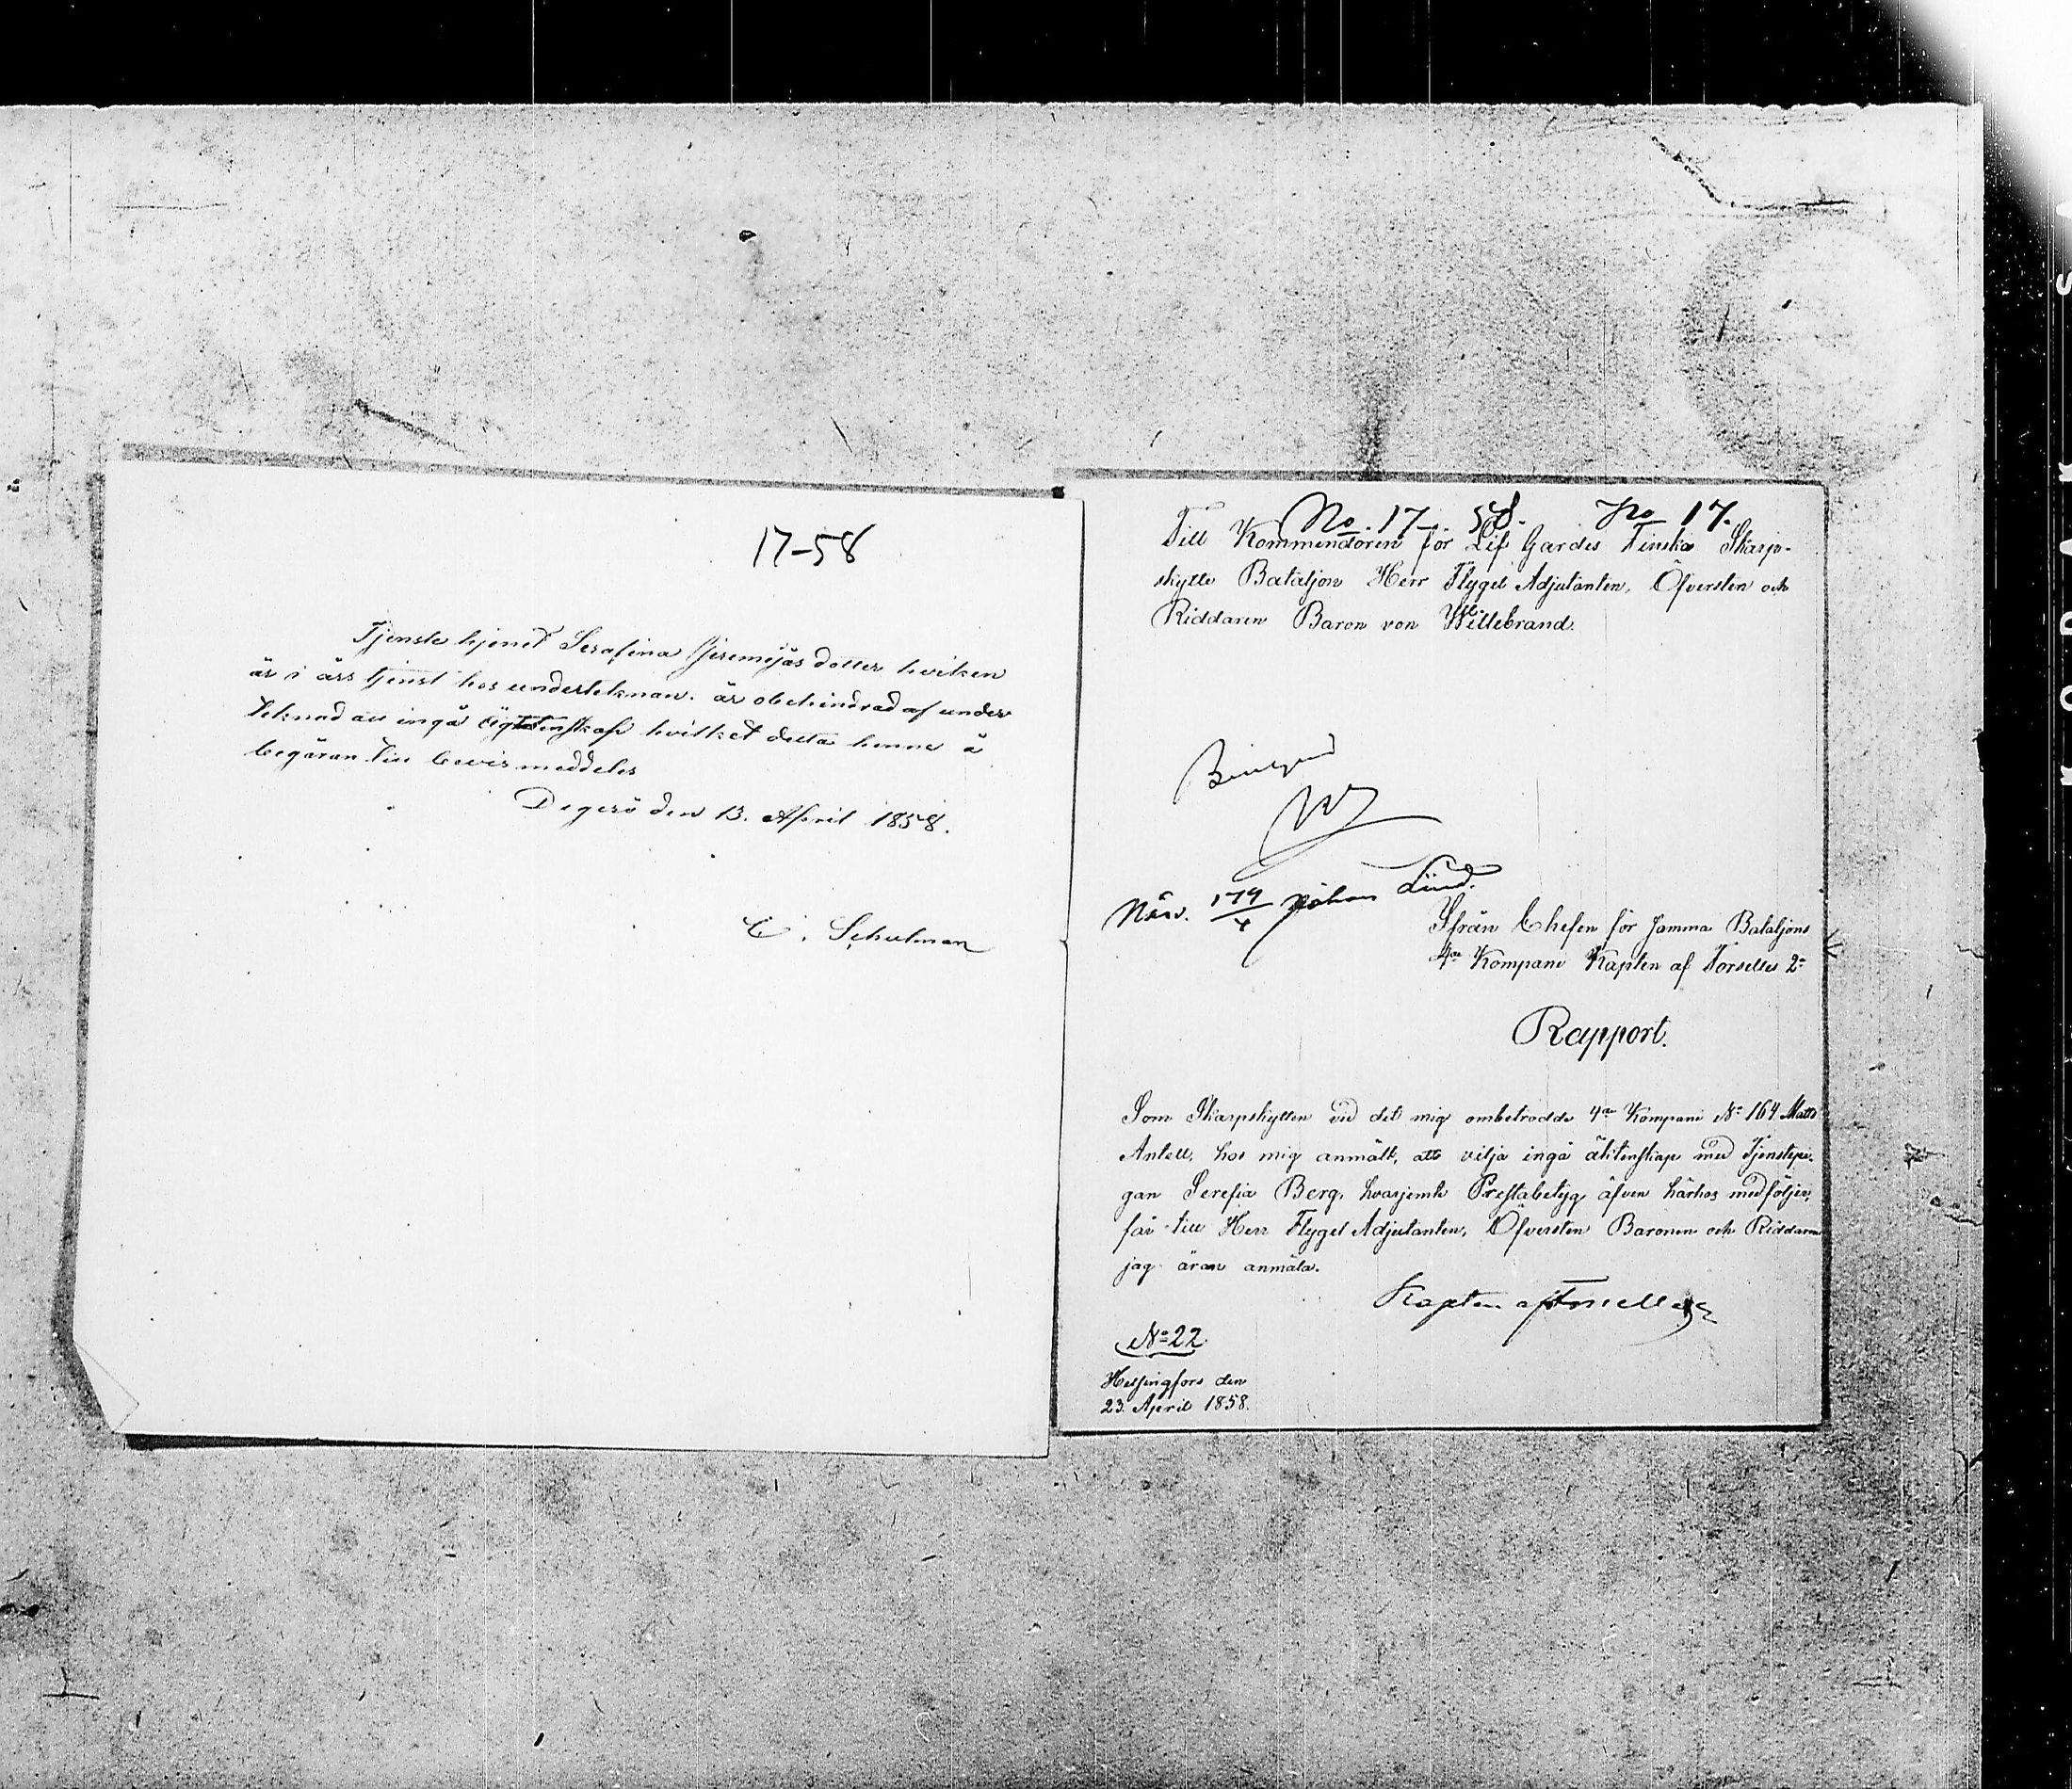 17-58
Tjenste hjonet Serafina Jeremijas dotter hvilken
är i års tjenst hos underteknan. är obehindrad af under
teknad att ingå ägtenskap hvilket detta henne å
begäran till bevis meddeles
Degerö den 13. April 1858.
C. Schulman
No. 17-58. No 17.
Till Kommendören för Lif Gardes Finska Skarp-
skytte Bataljon Herr Flygel Adjutanten, Öfversten och
Riddaren Baron von Willebrand.
W
174/4 Johan Lind.
Ifrån Chefen för samma Bataljons
4de Kompani Kapten af Forselles 2:
Rapport.
Som Skarpskytten vid det mig ombetrodde 4de Kompani No 164 Matts
Antell, hos mig anmält, att vilja ingå äktenskap med Tjenstepi-
gan Serefia Berg, hvarjemte Prestabetyg äfven härhos medföljer,
får till Herr Flygel Adjutanten, Öfversten Baronen och Riddaren
jag äran anmäla.
Kapten af Forselles 2
No 22
Helsingfors den
23. April 1858.